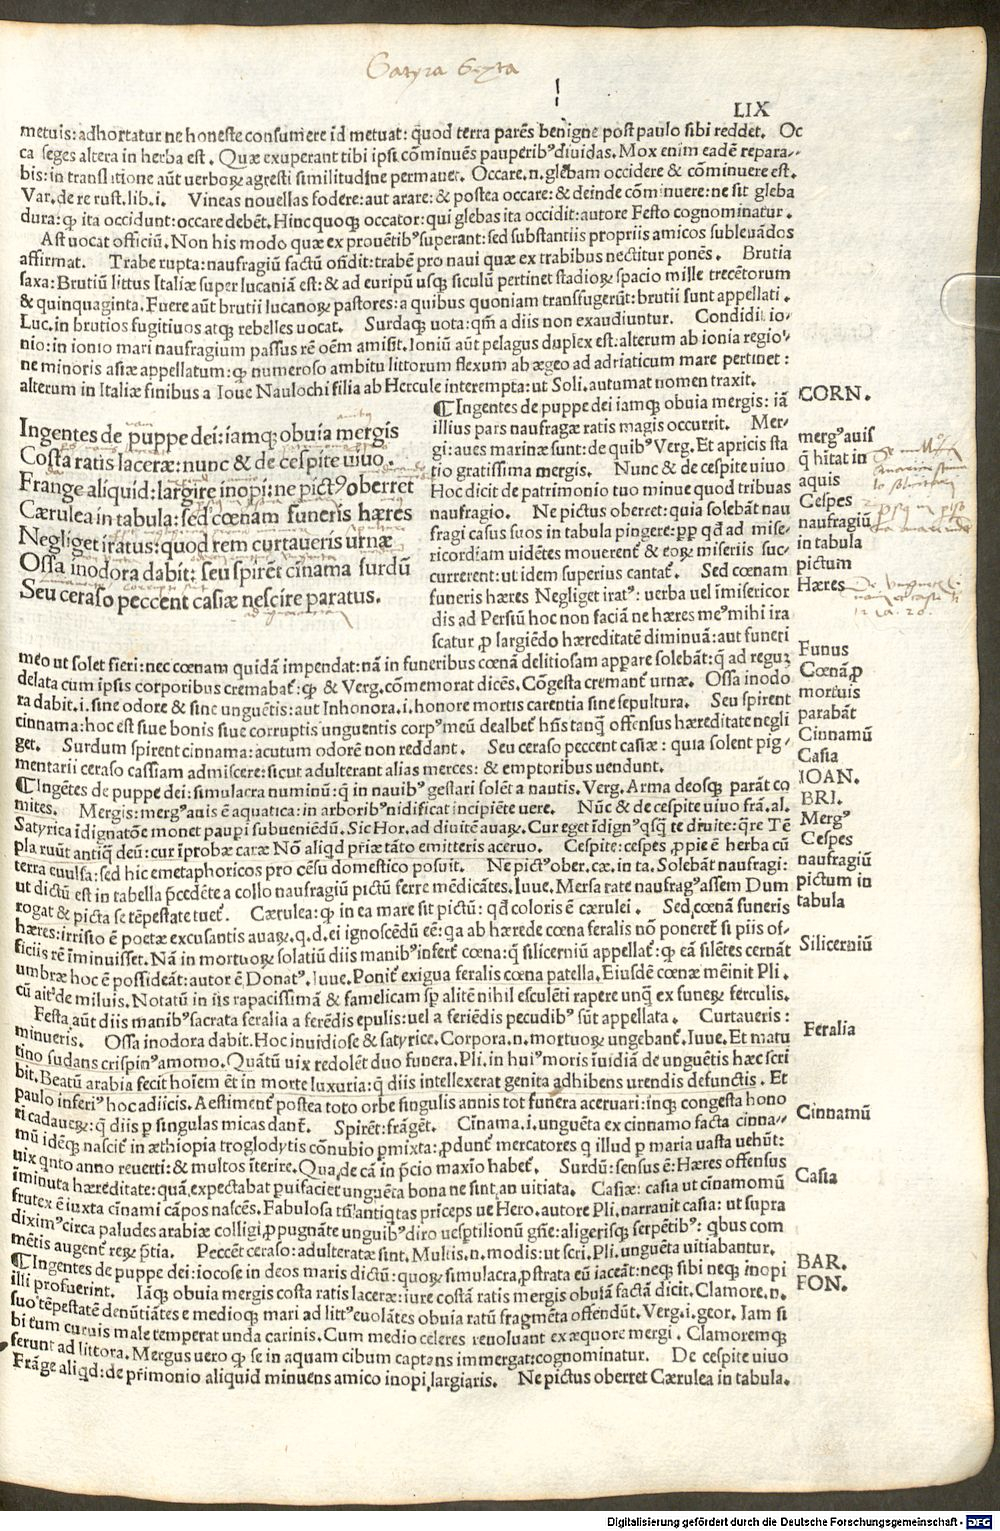 Satyra Sexta
LIX
metuis: adhortatur ne honeste consumere id metuat: quod terra parēs benigne post paulo sibi reddet. Oc
ca seges altera in herba est. Quæ exuperant tibi ipsi cōminuēs pauperibꝰ diuidas. Mox enim eadē repara-
bis: in translatione aūt uerboꝝ agresti similitudine permanet. Occare.n. glebam occidere & cōminuere est.
Var. de re rust. lib. i. Vineas nouellas fodere: aut arare: & postea occare: & deinde cōminuere: ne sit gleba
dura: ꝙ ita occidunt: occare debēt. Hinc quoqꝫ occator: qui glebas ita occidit: autore Festo cognominatur.
Ast uocat officiū. Non his modo quæ ex prouētibꝰ superant: sed substantiis propriis amicos subleuādos
affirmat. Trabe rupta: naufragiū factū oñdit: trabē pro naui quæ ex trabibus nectitur ponēs. Brutia
saxa: Brutiū littus Italiæ super lucaniā est: & ad euripū usqꝫ siculū pertinet stadioꝝ spacio mille trecētorum
& quinquaginta. Fuere aūt brutii lucanoꝝ pastores: a quibus quoniam transfugerūt: brutii sunt appellati.
Luc. in brutios fugitiuos atqꝫ rebelles uocat. Surdaqꝫ uota: qm̄ a diis non exaudiuntur. Condidit io-
nio: in ionio mari naufragium passus rē oēm amisit. Ioniū aūt pelagus duplex est: alterum ab ionia regio-
ne minoris asiæ appellatum: ꝙ numeroso ambitu littorum flexum ab ægeo ad adriaticum mare pertinet:
alterum in Italiæ finibus a Ioue Naulochi filia ab Hercule interempta: ut Soli. autumat nomen traxit.
Ingentes de puppe dei: iamqꝫ obuia mergis
Costa ratis laceræ: nunc & de cespite uiuo.
Frange aliquid: largire inopi: ne pictꝰ oberret
Cærulea in tabula: sed cœnam funeris hæres
Negliget iratus: quod rem curtaueris urnæ
Ossa inodora dabit: seu spirēt cīnama surdū
Seu ceraso peccent casiæ nescire paratus.
¶ Ingentes de puppe dei iamqꝫ obuia mergis: iā
illius pars naufragæ ratis magis occurrit. Mer-
gi: aues marinæ sunt: de quibꝰ Verg. Et apricis sta
tio gratissima mergis. Nunc & de cespite uiuo
Hoc dicit de patrimonio tuo minue quod tribuas
naufragio. Ne pictus oberret: quia solebāt nau
fragi casus suos in tabula pingere: ꝓꝑ qđ ad mise-
ricordiam uidētes mouerent & eoꝝ miseriis suc-
currerent: ut idem superius cantat. Sed cœnam
funeris hæres Negliget iratꝰ: uerba uel imisericor
dis ad Persiū hoc non faciā ne hæres meꝰ mihi ira
scatur, ꝓ largiēdo hæreditatē diminuā: aut funeri
meo ut solet fieri: nec cœnam quidā impendat: nā in funeribus cœnā delitiosam apparare solebāt: q̄ ad reguꝫ
delata cum ipsis corporibus cremabat: ꝙ & Verg. cōmemorat dicēs. Cōgesta cremant urnæ. Ossa inodo
ra dabit. i. sine odore & sine unguētis: aut Inhonora. i. honore mortis carentia sine sepultura. Seu spirent
cinnama: hoc est siue bonis siue corruptis unguentis corpꝰ meū dealbet hn̄s tanq̄ offensus hæreditate negli
get. Surdum spirent cinnama: acutum odorē non reddant. Seu ceraso peccent casiæ: quia solent pig-
mentarii ceraso cassiam admiscere: sicut adulterant alias merces: & emptoribus uendunt.
¶ Ingētes de puppe dei: simulacra numinū: q̄ in nauibꝰ gestari solēt a nautis. Verg. Arma deosqꝫ parāt co
mites. Mergis: mergꝰ auis ē aquatica: in arboribꝰ nidificat incipiēte uere. Nūc & de cespite uiuo frā. al.
Satyrica īdignatōe monet paupi subueniēdū. Sic Hor. ad diuitē auaꝝ. Cur eget īdignꝰ qsq̄ te diuite: q̄re Tē
pla ruūt antiq̄ deū: cur īprobæ caræ Nō aliqd pr̄iæ tāto emetiris aceruo. Cespite: cespes ꝓpie ē herba cū
terra euulsa: sed hic emetaphoricos pro cēsu domestico posuit. Ne pictꝰ ober. cæ. in ta. Solebāt naufragi:
ut dictū est in tabella p̄cedēte a collo naufragiū pictū ferre mēdicātes. Iuue. Mersa rate naufragꝰ assem Dum
rogat & picta se tēpestate tuet. Cærulea: ꝙ in ea mare sit pictū: qđ coloris ē cærulei. Sed cœnā funeris
hæres: irrisio ē poetæ excusantis auaꝝ. q.d. ei ignoscēdū eē: qa ab hærede cœna feralis nō poneret si piis of-
ficiis rē īminuisset. Nā in mortuoꝝ solatiū diis manibꝰ infert cœna: q̄ silicerniū appellat: ꝙ eā silētes cernāt
umbræ hoc ē possideāt: autor ē Donatꝰ. Iuue. Ponit exigua feralis cœna patella. Eiusdē cœnæ mēinit Pli.
cū ait de miluis. Notatū in iis rapacissimā & famelicam sp alitē nihil esculēti rapere unq̄ ex funeꝝ ferculis.
Festa aūt diis manibꝰ sacrata feralia a ferēdis epulis: uel a feriēdis pecudibꝰ sūt appellata. Curtaueris:
minueris. Ossa inodora dabit. Hoc inuidiose & satyrice. Corpora.n. mortuoꝝ ungebant. Iuue. Et matu
tino sudans crispinꝰ amomo. Quātū uix redolēt duo funera. Pli. in huiꝰ moris īuidiā de unguētis hæc scri
bit. Beatū arabia fecit hoīem ēt in morte luxuria: q̄ diis intellexerat genita adhibens urendis defunctis. Et
paulo inferiꝰ hoc adiicis. Aestiment postea toto orbe singulis annis tot funera aceruari: inqꝫ congesta hono
ri cadaueꝝ: q̄ diis p singulas micas dant. Spirēt: frāgēt. Cīnama. i. unguēta ex cinnamo facta cinna-
mū idēqꝫ nascit in æthiopia troglodytis cōnubio pmixta: ꝓdunt mercatores q illud p maria uasta uehūt:
uix qnto anno reuerti: & multos īterire. Qua de cā in p̄cio maxīo habet. Surdū: sensus ē: Hæres offensus
īminuta hæreditate: quā expectabat puifaciet unguēta bona ne sint, an uitiata. Casiæ: casia ut cīnamomū
frutex ē iuxta cīnami cāpos nascēs. Fabulosa tn̄ antiqtas prīceps ue Hero. autore Pli. narrauit casiā: ut supra
diximꝰ circa paludes arabiæ colligi, ꝓpugnāte unguibꝰ diro uesptilionū gn̄e: aligerisqꝫ serpētibꝰ: qbus com
mētis augent reꝝ p̄tia. Peccēt ceraso: adulteratæ sint. Multis.n. modis: ut scri. Pli. unguēta uitiabantur.
¶ Ingentes de puppe dei: iocose in deos maris dictū: quoꝝ simulacra, pstrata cū iaceāt: neqꝫ sibi neqꝫ inopi
illi profuerint. Iāqꝫ obuia mergis costa ratis laceræ: iure costā ratis mergis obuiā factā dicit. Clamore.n.
suo tēpestatē denūtiātes e medioqꝫ mari ad littꝰ euolātes obuia ratū fragmēta offendūt. Verg. i. geor. Iam si
bi tum curuis male temperat unda carinis. Cum medio celeres reuoluant ex æquore mergi. Clamoremqꝫ
ferunt ad littora. Mergus uero ꝙ se in aquam cibum captans immergat: cognominatur. De cespite uiuo
Frāge aliqd: de pr̄imonio aliquid minuens amico inopi largiaris. Ne pictus oberret Cærulea in tabula.
CORN.
mergꝰ auis
q̄ hitat in
aquis
Cespes
naufragiū
in tabula
pictum
Hæres
Funus
Cœnā ꝓ
mortuis
parabāt
Cinnamū
Casia
IOAN.
BRI.
Mergꝰ
Cespes
naufragiū
pictum in
tabula
Silicerniū
Feralia
Cinnamū
Casia
BAR.
FON.
Digitalisierung gefördert durch die Deutsche Forschungsgemeinschaft - DFG